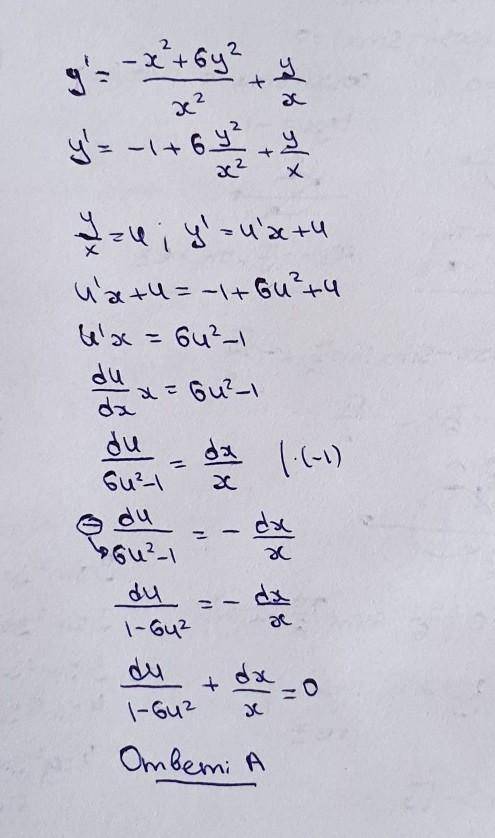 y' = (-x² + 6y²)/x² + y/x
y' = -1 + 6 y²/x² + y/x
y/x = u ; y' = u'x + u
u'x + u = -1 + 6u² + u
u'x = 6u² - 1
du/dx x = 6u² - 1
du/(6u² - 1) = dx/x | · (-1)
⊖ du/(6u² - 1) = - dx/x
du/(1 - 6u²) = - dx/x
du/(1 - 6u²) + dx/x = 0
Ответ: A